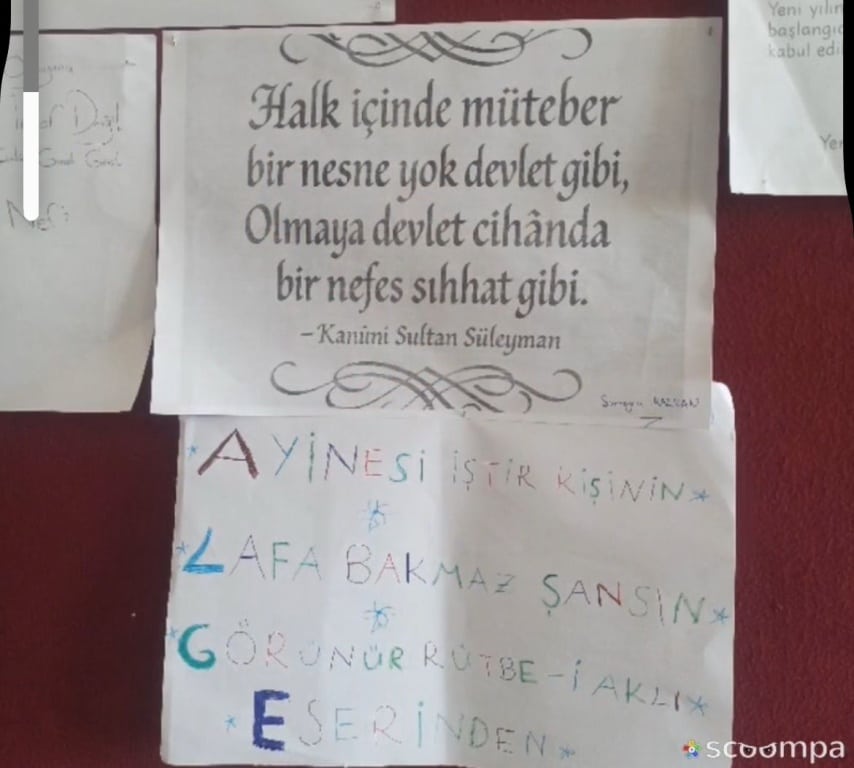 Değil
Nef'i
Halk içinde müteber
bir nesne yok devlet gibi,
Olmaya devlet cihânda
bir nefes sıhhat gibi.
–Kanûni Sultan Süleyman
AYİNESİ İŞTİR KİŞİNİN
LAFA BAKMAZ ŞANSIN
GÖRÜNÜR RÜTBE-İ AKLI
ESERİNDEN
Yeni yılın
başlangıc
kabul edi
Yer
scoompa